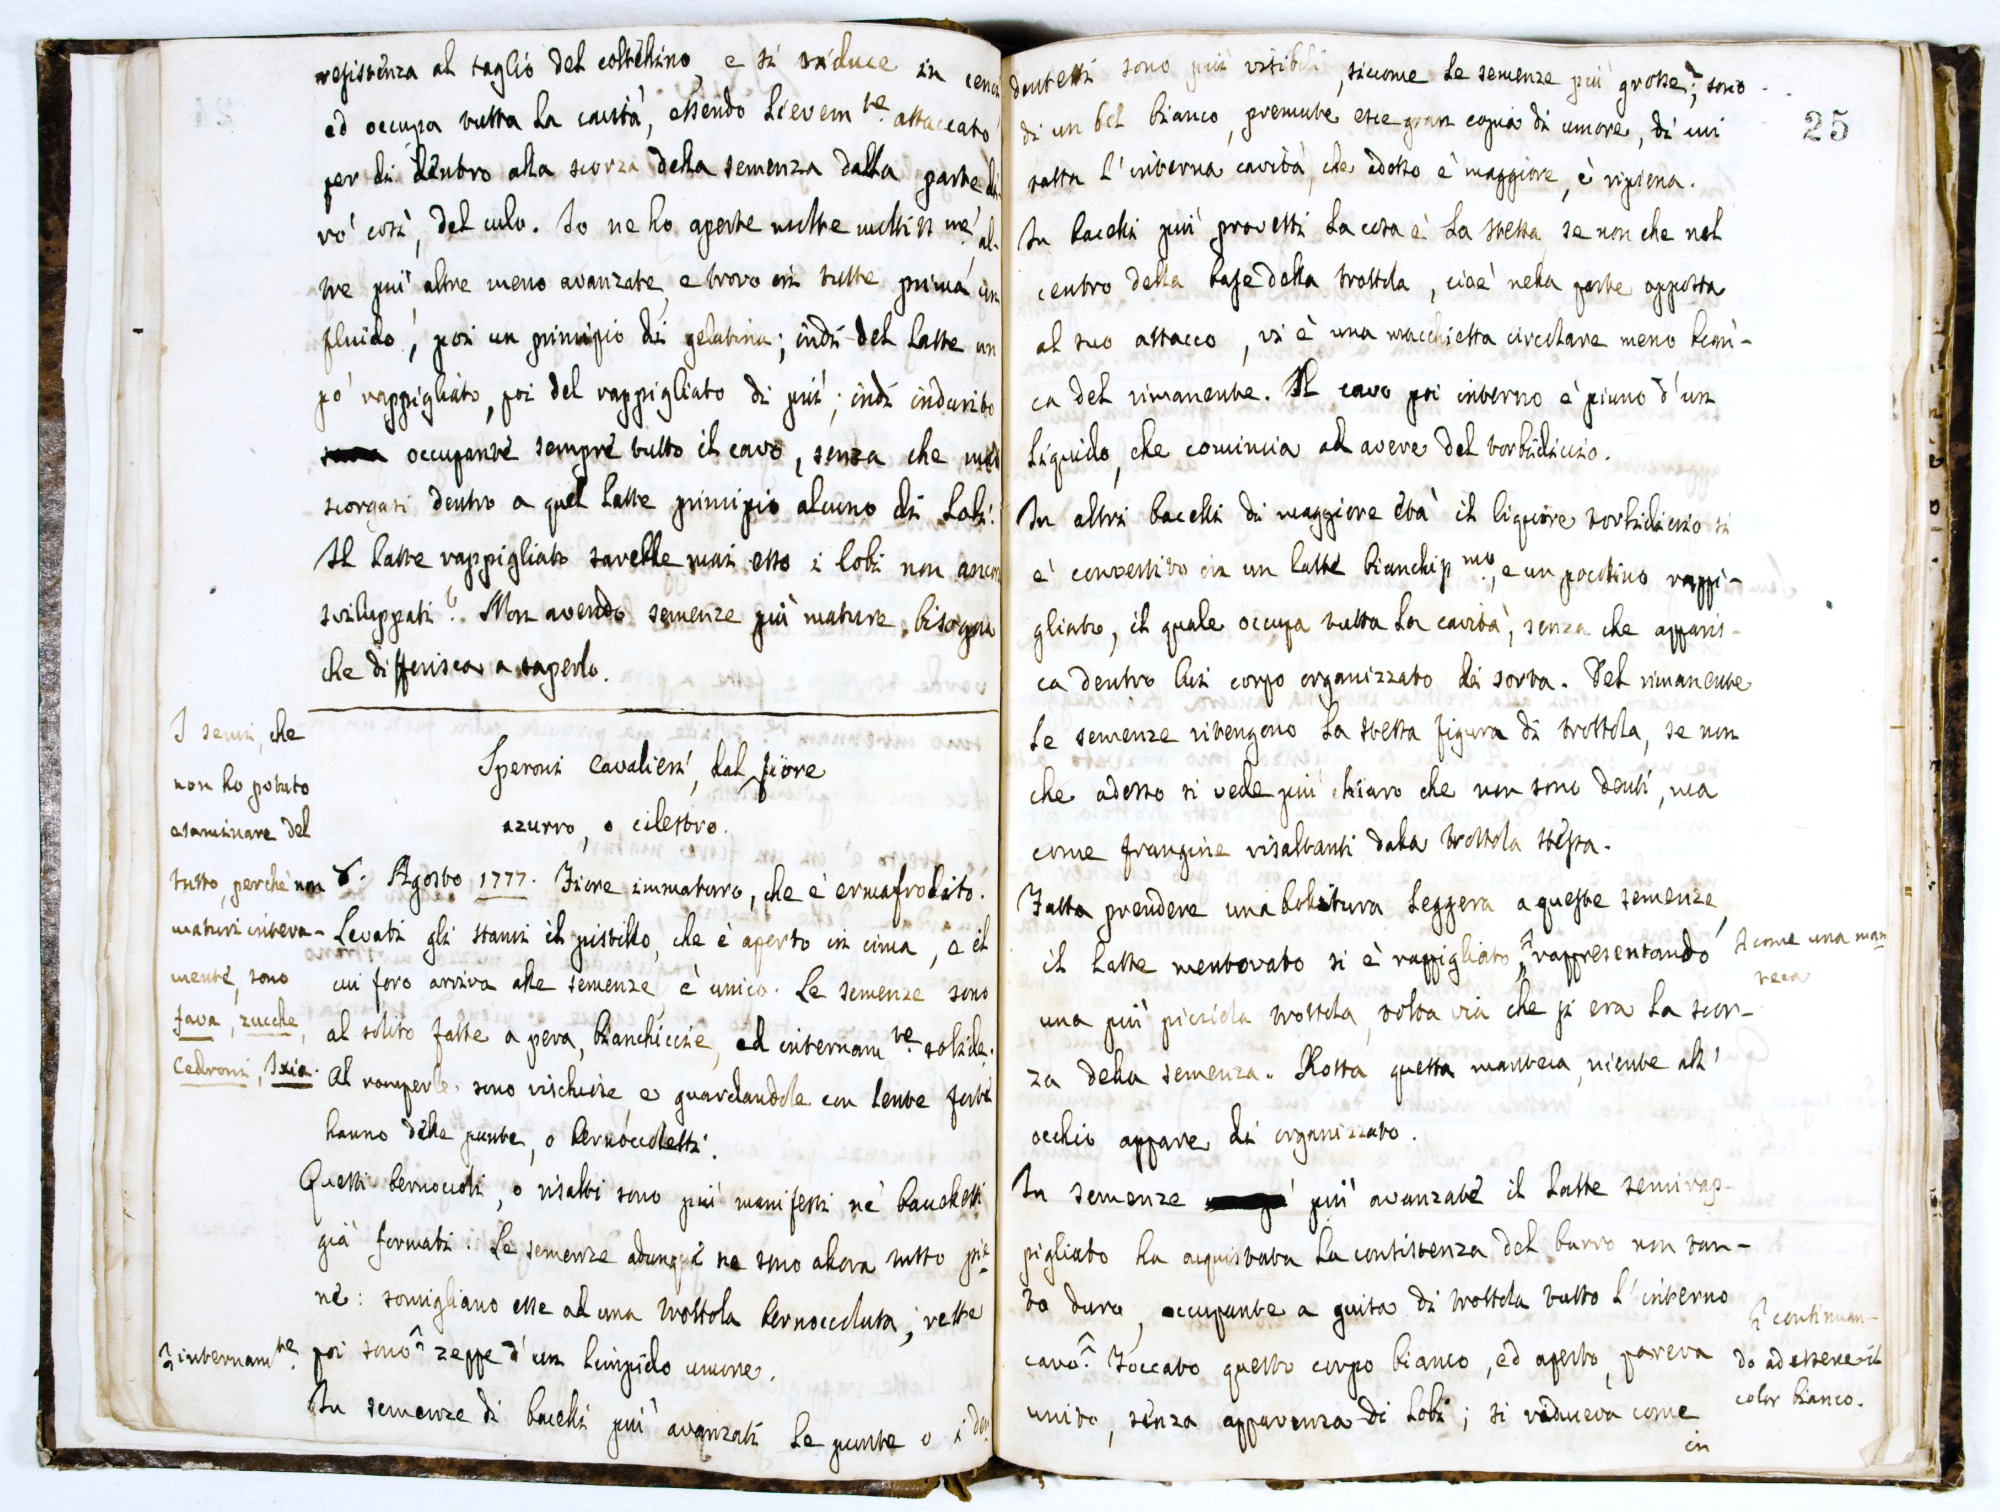 resistenza al taglio del coltellino, e si riduce in cenci
ed occupa tutta la cavità, essendo lievem.te attaccato
per di dentro alla scorza della semenza dalla parte di
rò così, del culo. Io ne ho aperte molte moltiss.me, al-
tre più altre meno avanzate, e trovo in tutte prima un
fluido, poi un principio di gelatina; indi del latte un
pò rappigliato, poi del rappigliato di più; indi indurito
occupante sempre tutto il cavo, senza che mai
scorgasi dentro a quel latte principio alcuno di lobi.
Il latte rappigliato sarebbe mai esso i lobi non ancor
sviluppati? Non avendo semenze più mature, bisogna
che differisca a saperlo.
I semi, che
non ho potuto
esaminare del
tutto, perchè non
maturi intera-
mente, sono
fava, zucche,
Cedroni, Ixia.
Speroni cavalieri, dal fiore
azurro, o cilestro.
8. Agosto 1777. Fiore immaturo, che è ermafrodito.
Levati gli stami il pistillo, che è aperto in cima, e il
cui foro arriva alle semenze, è unico. Le semenze sono
al solito fatte a pera, bianchiccie, ed internam.te solide.
Al romperle sono vischiose e guardandole con lente forte
hanno delle punte, o bernoccoletti.
Questi bernoccoli, o risalti sono più manifesti ne' baccelletti
già formati. Le semenze adunque ne sono allora tutto pie
ne: somigliano esse ad una trottola bernoccoluta; rotte
poi sono ^ zeppe d'un limpido umore.
^ internam.te
In semenze di baccelli più avanzati le punte o i den
25
dentelli sono più visibili, siccome le semenze più grosse; sono
di un bel bianco, premute esce gran copia di umore, di cui
tutta l'interna cavità, che adesso è maggiore, è ripiena.
In baccelli più provetti la cosa è la stessa se non che nel
centro della base della trottola, cioè nella parte opposta
al suo attacco, vi è una macchietta circolare meno bian-
ca del rimanente. Il cavo poi interno è pieno d'un
liquido, che comincia ad avere del torbidiccio.
In altri bacelli di maggiore età il liquore torbidiccio si
è convertito in un latte bianchiss.mo, e un pocolino rappi-
gliato, il quale occupa tutta la cavità, senza che appari-
ca dentro lui corpo organizzato di sorta. Del rimanente
le semenze ritengono la stessa figura di trottola, se non
che adesso si vede più chiaro che non sono denti, ma
come frangine risaltanti dalla trottola stessa.
Fatta prendere una bollitura leggera a queste semenze,
il latte mentovato si è rappigliato ^, rappresentando
^ come una man
teca
una più picciola trottola, tolta via che si era la scor-
za della semenza. Rotta questa manteca, niente all'
occhio appare di organizzato.
In semenze più avanzate il latte semirap-
pigliato ha acquistata la consistenza del burro non tan-
to duro, occupante a guisa di trottola tutto l'interno
cavo ^. Toccato questo corpo bianco, ed aperto, pareva
^ continuan-
do ad essere il
color bianco.
unito, senza apparenza di lobi; si riduceva come
in